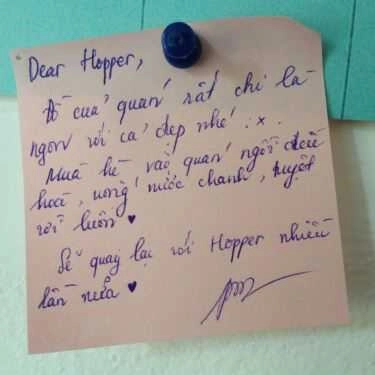 Dear Hopper,
Đồ của quán rất chi là
ngon rồi cả đẹp nhé :x.
Mùa hè vào quán ngồi điều
hoà, uống nước chanh, tuyệt
vời luôn ♥
Sẽ quay lại với Hopper nhiều
lần nữa ♥